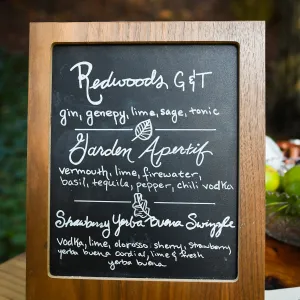 Redwoods G&T
gin, genepy, lime, sage, tonic
Garden Apertif
vermouth, lime, firewater,
basil, tequila, pepper, chili vodka
Strawberry Yerba buena Swizzle
vodka, lime, olorosso sherry, strawberry
yerba buena cordial, lime & fresh
yerba buena